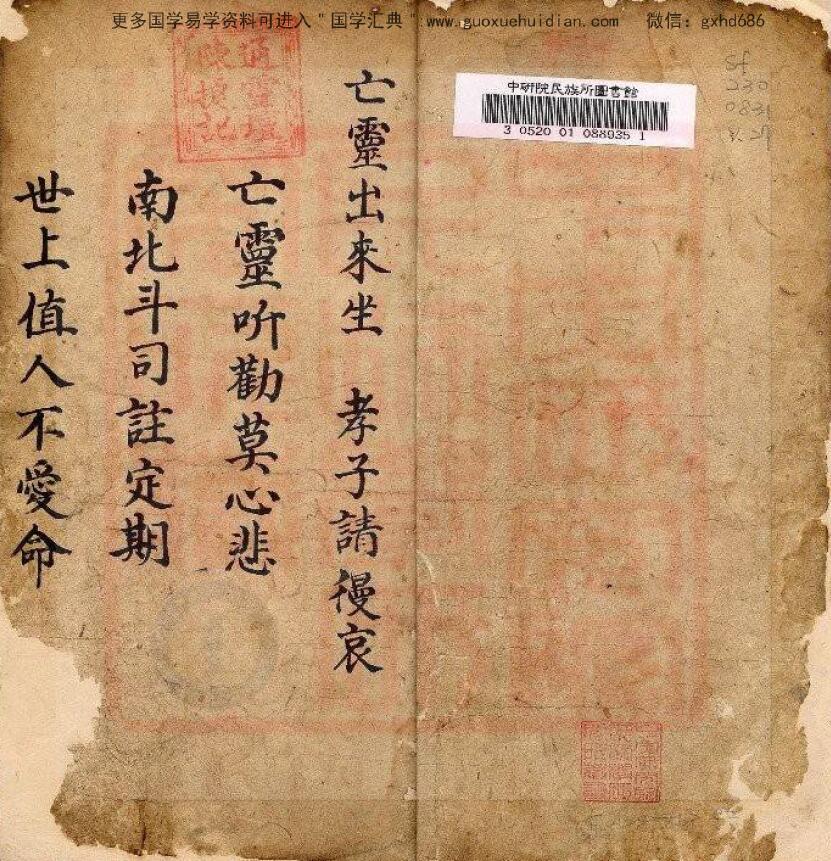 更多国学易学资料可进入＂国学汇典＂www.guoxuehuidian.com　微信：gxhd686
中研院民族所圖書館
3 0520 01 088935 1
Sf
230
0831
亡靈出來坐　孝子請慢哀
亡靈听勸莫心悲
南北斗司註定期
世上值人不愛命